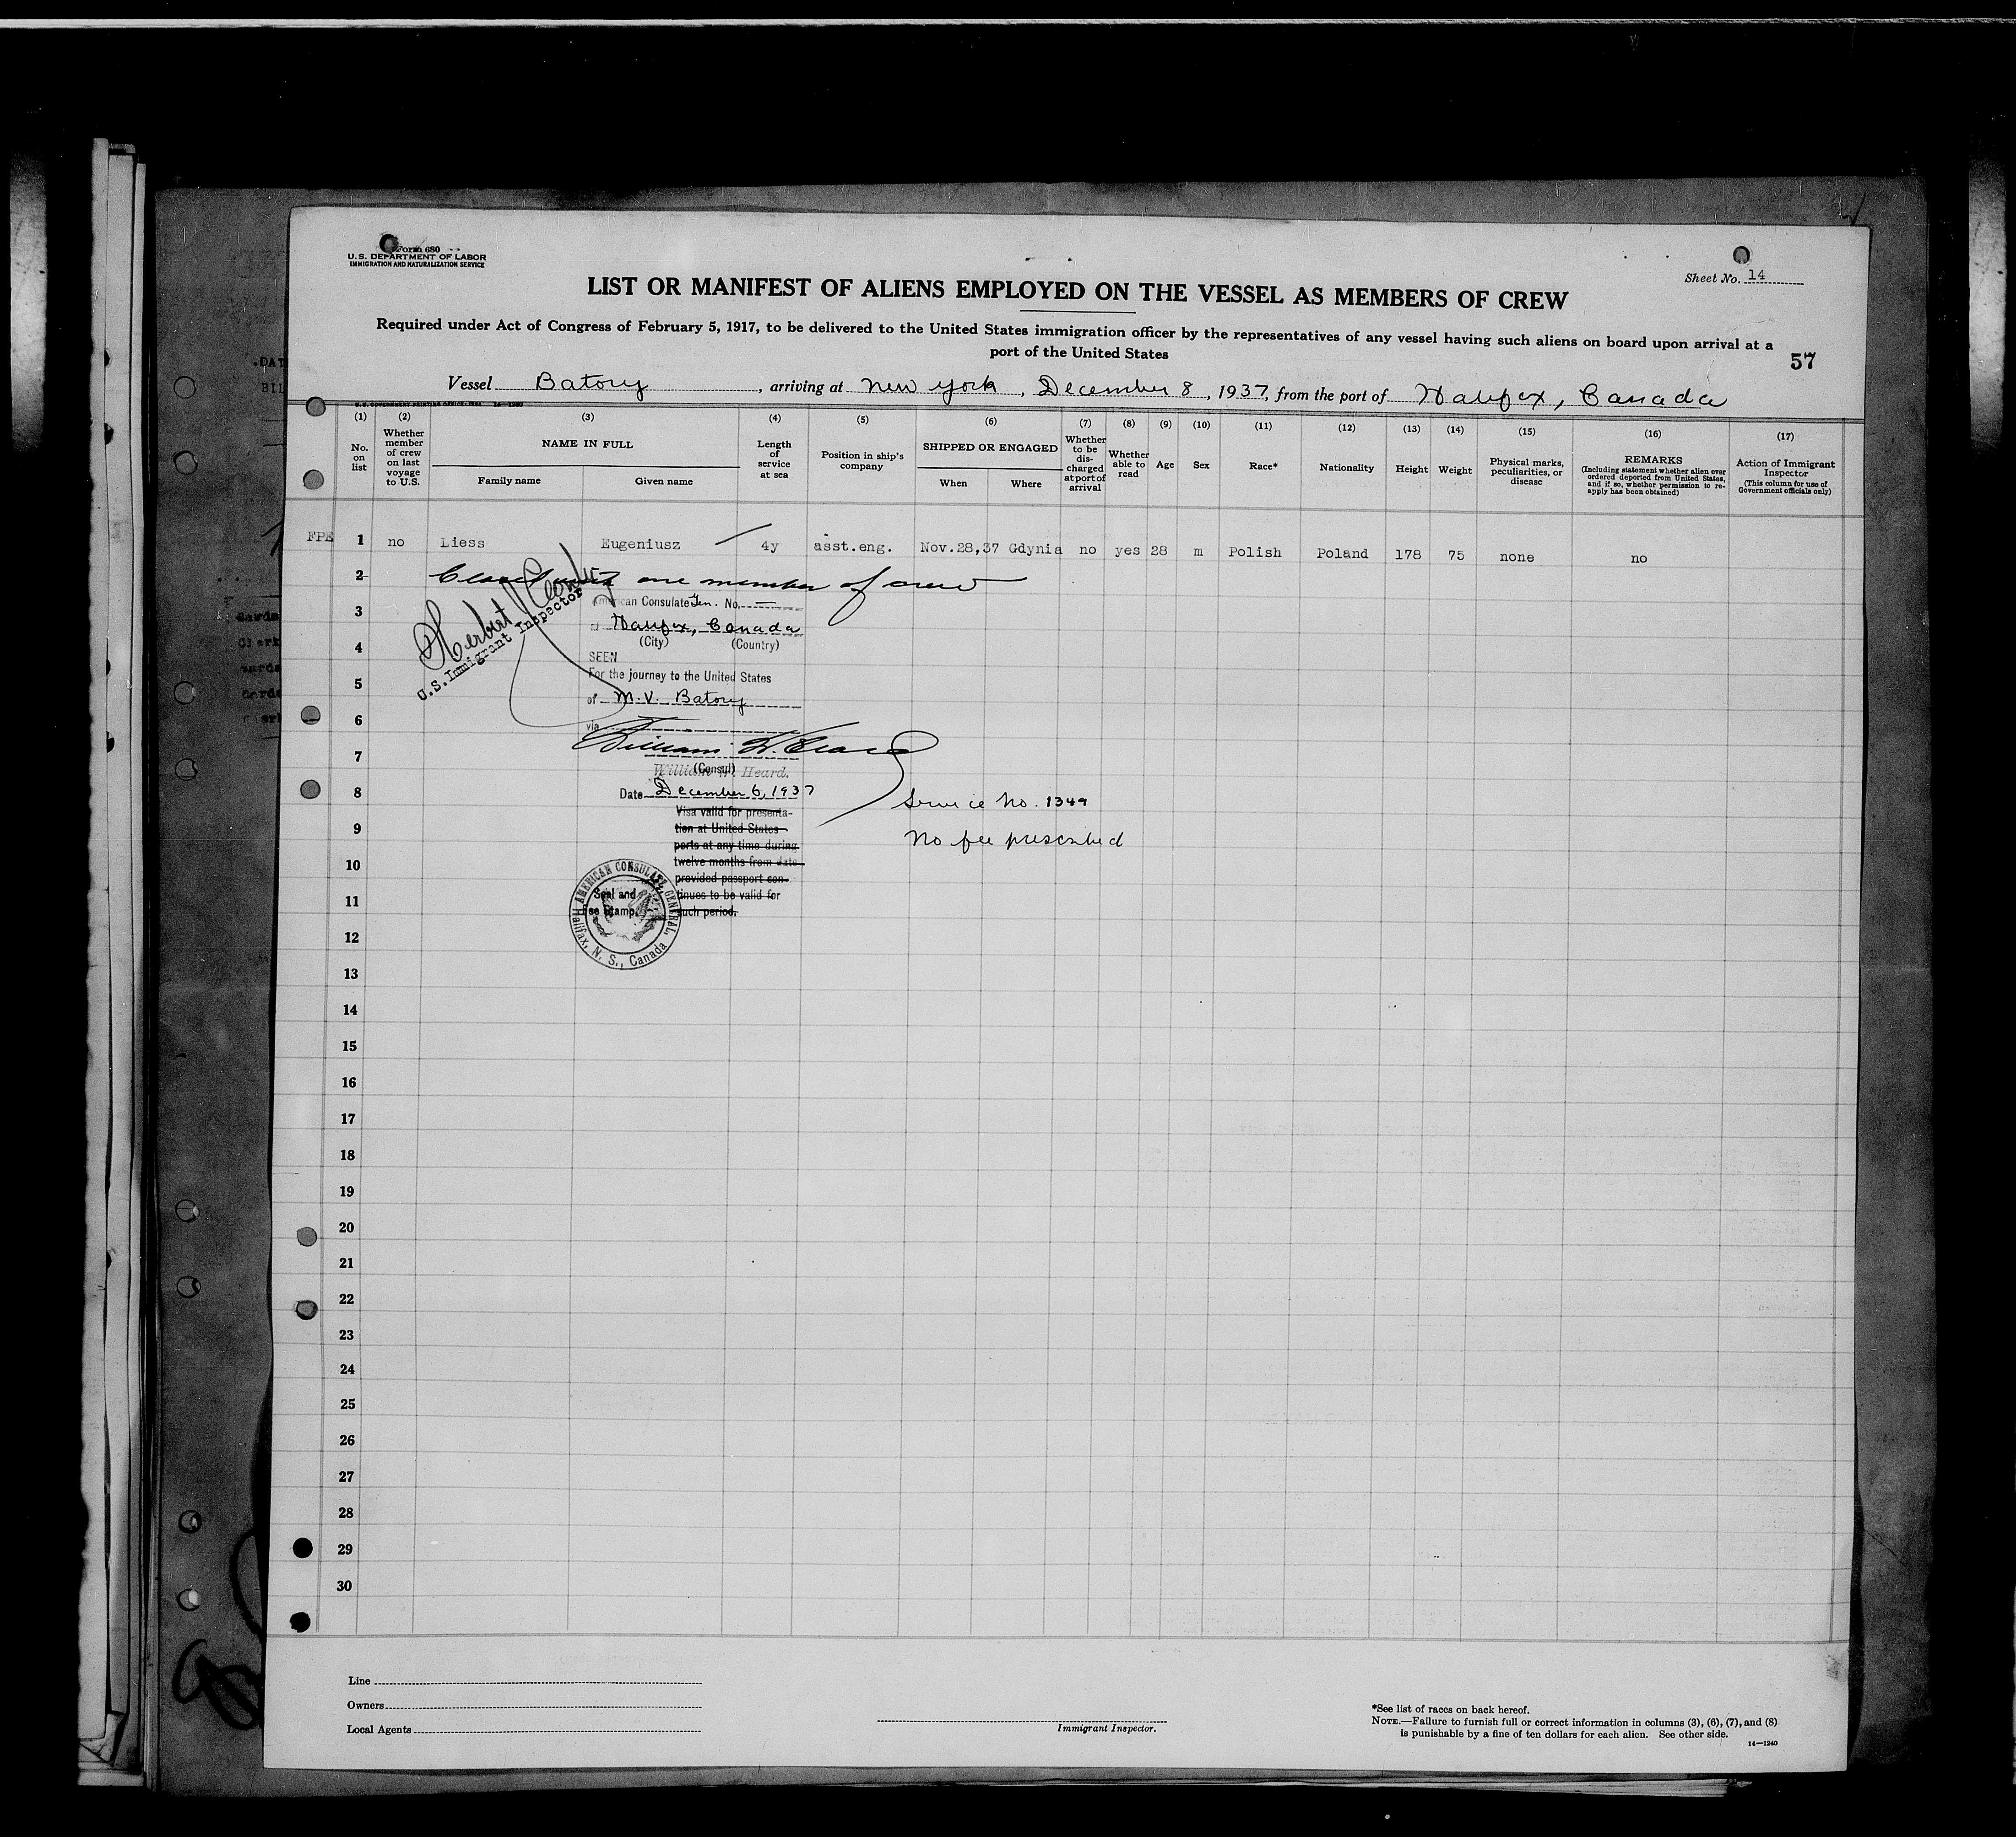 Form 680
U.S. DEPARTMENT OF LABOR
IMMIGRATION AND NATURALIZATION SERVICE
Sheet No. 14
LIST OR MANIFEST OF ALIENS EMPLOYED ON THE VESSEL AS MEMBERS OF CREW
Required under Act of Congress of February 5, 1917, to be delivered to the United States immigration officer by the representatives of any vessel having such aliens on board upon arrival at a
port of the United States
57
Vessel Batory, arriving at New York, December 8, 1937, from the port of Halifax, Canada
(1) No. on list
(2) Whether member of crew on last voyage to U.S.
(3) NAME IN FULL
Family name
Given name
(4) Length of service at sea
(5) Position in ship's company
(6) SHIPPED OR ENGAGED
When
Where
(7) Whether to be discharged at port of arrival
(8) Whether able to read
(9) Age
(10) Sex
(11) Race*
(12) Nationality
(13) Height
(14) Weight
(15) Physical marks, peculiarities, or disease
(16) REMARKS (Including statement whether alien ever ordered deported from United States, and if so, whether permission to reapply has been obtained)
(17) Action of Immigrant Inspector (This column for use of Government officials only)
FPE 1 no Liess Eugeniusz 4y asst.eng. Nov.28,37 Gdynia no yes 28 m Polish Poland 178 75 none no
2 Closed with one member of crew
3 American Consulate Gen. No.
at Halifax, Canada
4 (City) (Country)
SEEN
5 For the journey to the United States
of M.V. Batory
Herbert
U.S. Immigrant Inspector
6 via
William W. Heard
7 (Consul)
William W. Heard.
8 Date December 6, 1937
Service No. 1349
Visa valid for presenta-
9 tion at United States
No fee prescribed
ports at any time during
10 twelve months from date
provided passport con-
11 tinues to be valid for
such period.
Seal and
Fee Stamp.
AMERICAN CONSULATE GENERAL, Halifax, N. S., Canada
12
13
14
15
16
17
18
19
20
21
22
23
24
25
26
27
28
29
30
Line
Owners
Local Agents
Immigrant Inspector.
*See list of races on back hereof.
NOTE.—Failure to furnish full or correct information in columns (3), (6), (7), and (8)
is punishable by a fine of ten dollars for each alien. See other side.
14—1240